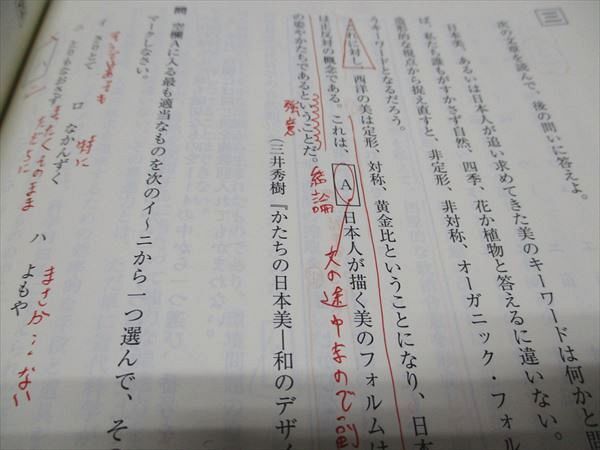 三
次の文章を読んで、後の問いに答えよ。
日本美、あるいは日本人が追い求めてきた美のキーワードは何かと問
ば、私たち誰もがすかさず自然、四季、花か植物と答えるに違いない。
造形的な視点から捉え直すと、非定形、非対称、オーガニック・フォル
うキーワードとなるだろう。
これに対し、西洋の美は定形、対称、黄金比ということになり、日本
は正反対の概念である。これは、 A 日本人が描く美のフォルムは
の姿やかたちであるということだ。
強意
結論
文の途中なので副
(三井秀樹『かたちの日本美―和のデザイ
問 空欄Aに入る最も適当なものを次のイ〜ニから一つ選んで、そ
マークしなさい。
イ さりとて
ロ なかんずく
特に
ハ よもや
まさか…ない
ニ とりもなおさず
まったくそのまま